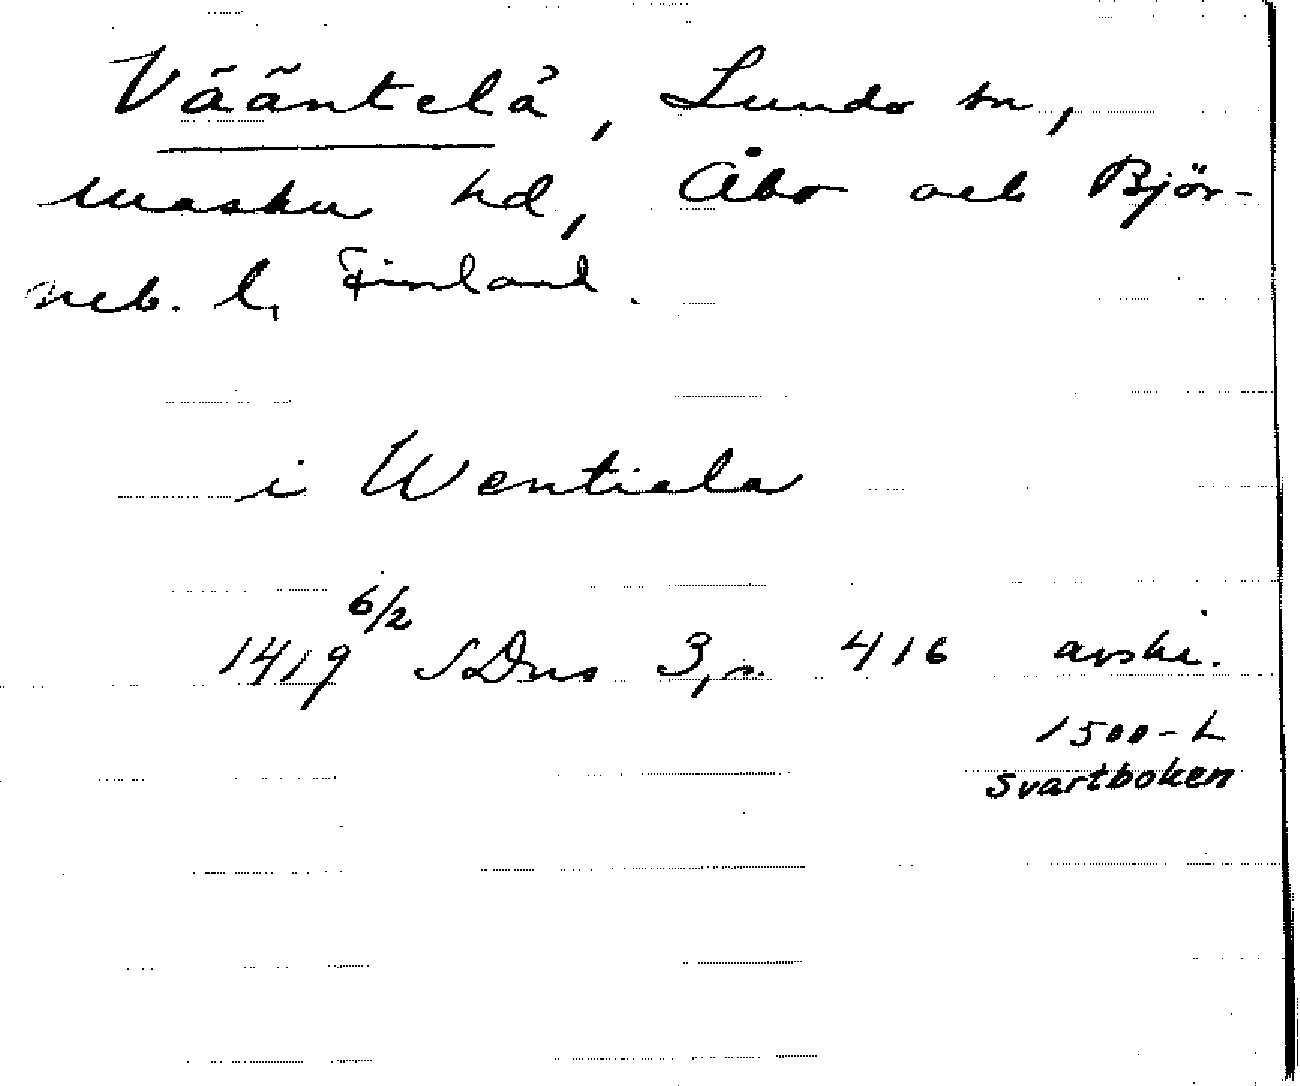 Vääntelä, Lundo sn,
Masku hd, Åbo och Björ-
neb. l, Finland.
i Wentiela
1419 6/2 SDns 3, s. 416 avskr.
1500-t
Svartboken